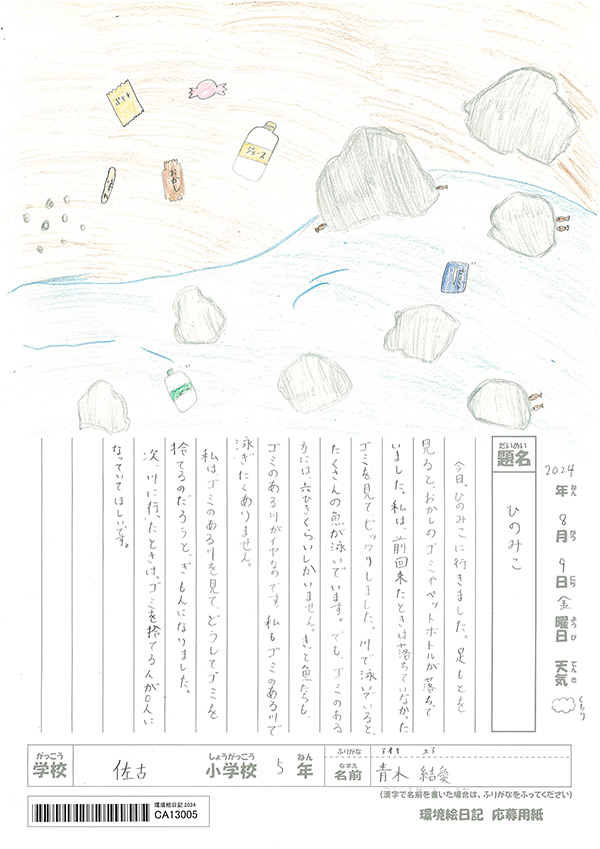 ポテト
ジュース
おかし
だいめい
題名
ひのみこ
2024
年 ねん
8
月 がつ
9
日 にち
金
曜日 ようび
天気 てんき
くもり
今日、ひのみこに行きました。足もとを
見ると、おかしのゴミやペットボトルが落ちて
いました。私は、前回来たときは落ちていなかった
ゴミを見て、ビックリしました。川で泳いでいると、
たくさんの魚が泳いでいます。でも、ゴミのある
方には、六ぴきくらいしかいません。きっと魚たちも、
ゴミのある川がイヤなのです。私もゴミのある川で
泳ぎたくありません。
私はゴミのある川を見て、どうしてゴミを
捨てるのだろうと、ぎもんになりました。
次、川に行ったときは、ゴミを捨てる人が0人に
なっていてほしいです。
がっこう
学校
佐古
しょうがっこう
小学校
5
ねん
年
ふりがな
なまえ
名前
青木 結愛
(漢字で名前を書いた場合は、ふりがなをふってください)
環境絵日記2024
CA13005
環境絵日記 応募用紙